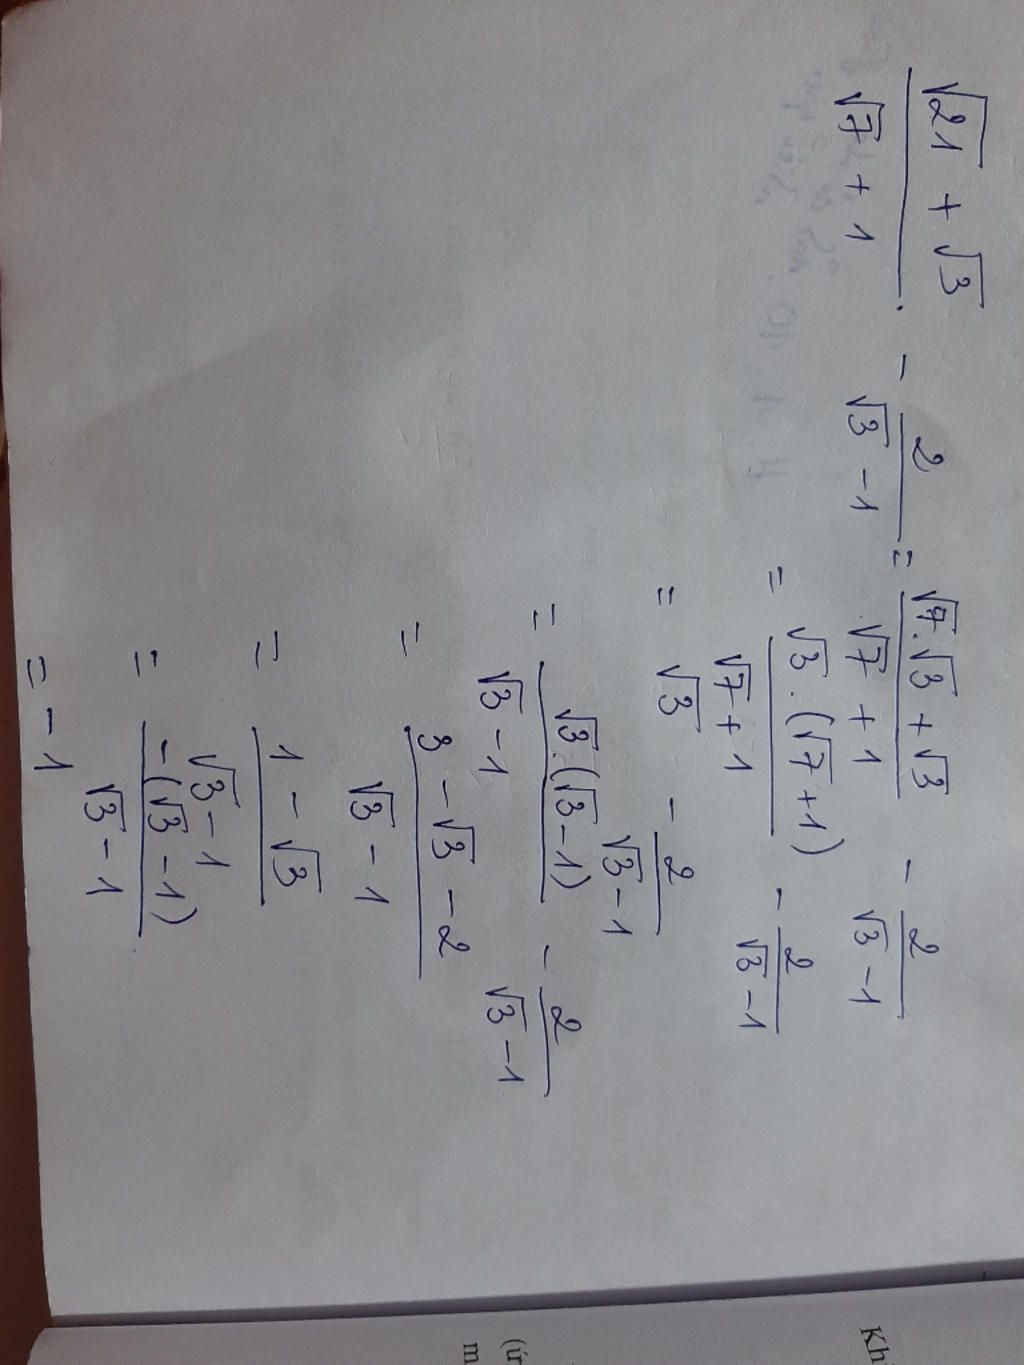 (√21 + √3)/(√7 + 1) - 2/(√3 - 1) = (√7.√3 + √3)/(√7 + 1) - 2/(√3 - 1)
= (√3.(√7 + 1))/(√7 + 1) - 2/(√3 - 1)
= √3 - 2/(√3 - 1)
= (√3.(√3 - 1))/(√3 - 1) - 2/(√3 - 1)
= (3 - √3 - 2)/(√3 - 1)
= (1 - √3)/(√3 - 1)
= (-(√3 - 1))/(√3 - 1)
= -1